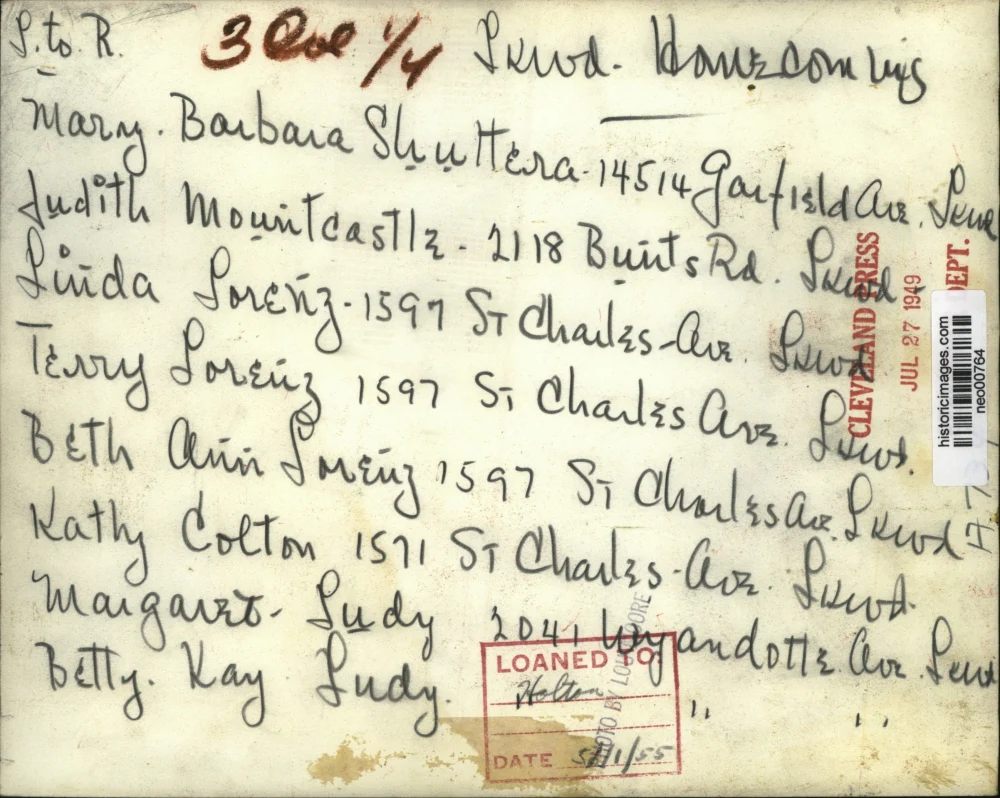 L. to R. 3 Col 1/4 Lkwd. Homecoming
Mary. Barbara Shuttera. 14514 Garfield Ave. Lkwd
Judith Mountcastle. 2118 Bunts Rd. Lkwd.
Linda Lorenz. 1597 St Charles Ave. Lkwd
Terry Lorenz 1597 St Charles Ave. Lkwd.
Beth Ann Lorenz 1597 St Charles Ave. Lkwd
Kathy Colton 1571 St Charles Ave. Lkwd.
Margaret Ludy 2041 Wyandotte Ave. Lkwd
Betty. Kay Ludy. " "
CLEVELAND PRESS
JUL 27 1949
DEPT.
historicimages.com
neo00764
LOANED TO:
Holton
DATE 5/11/55
PHOTO BY LOUIS MOORE